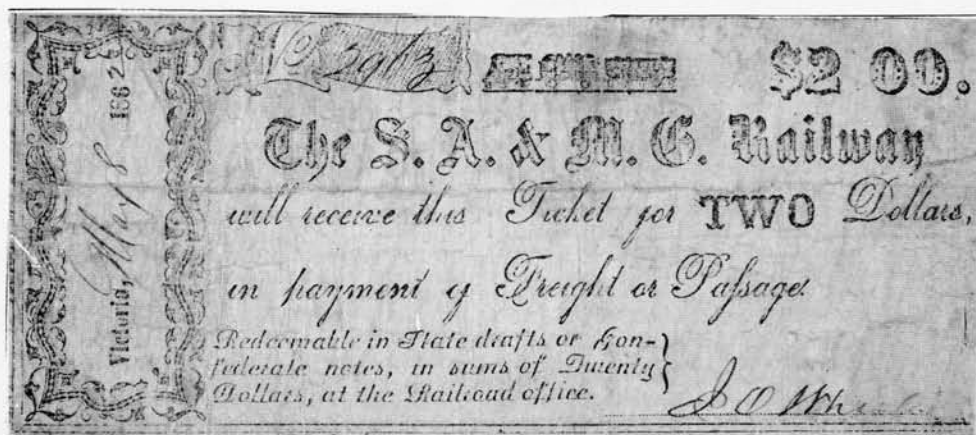 2963 $2 00.
The S. A. & M. G. Railway
will receive this Ticket for TWO Dollars,
in payment of Freight or Passage.
Redeemable in State drafts or Con-
federate notes, in sums of Twenty
Dollars, at the Railroad office.
J O Wheeler
Victoria, May 8 1862